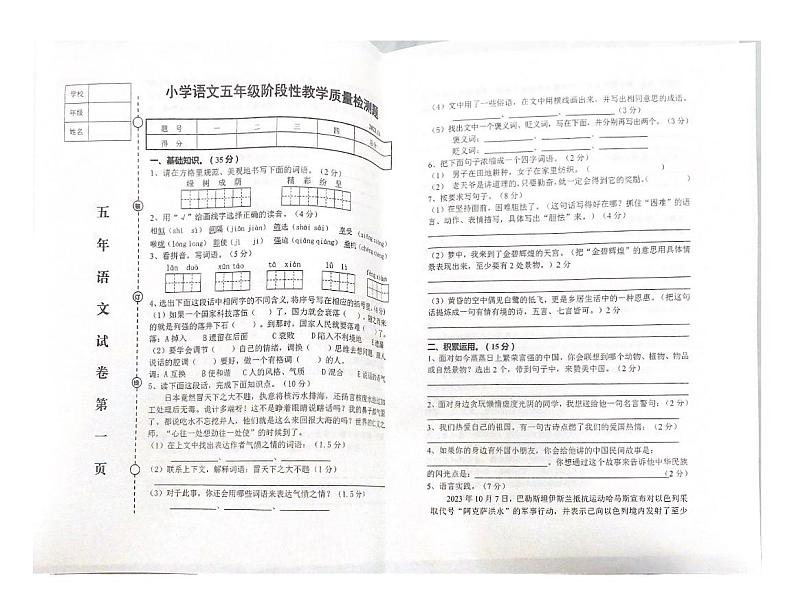 学校
年级
姓名
五年语文试卷第一页
小学语文五年级阶段性教学质量检测题
题 号 一 二 三 四
得 分
一、基础知识。（35 分）
1、请在方格里规范、美观地书写下面的词语。（2 分）
绿 树 成 荫 精 彩 纷 呈
2、用“√”给画线字选择正确的读音。（4 分）
相似（shì sì） 间隔（jiān jiàn）
喉咙（lóng long） 差使（ jī jí ） 强迫（qiáng qiǎng）
3、看拼音，写词语。（5 分）
lǎn duò xùn táo tà xiàn lǜ lì
4、选出下面这段话中相同字的不同含义，将序号写在相应的括号里。（4 分）
（1）如果一个国家科技落伍（ ）了，国力就会衰落（ ），随之而来
的就是列强的落井下石（ ）。到那时，国家人民就要落难（ ）了。
落：A 掉入 B 遗留在后面 C 衰败 D 陷入不利境地
（2）要学会调节（ ）自己的情绪，调换（ ）思维去想问题，
说话的腔调（ ）要好，做一个有格调（ ）的人。
调：A 互换 B 使和谐 C 人的风格、气质 D 混合 E
5、读下面这段话，完成下面知识点。（10 分）
日本竟然冒天下之大不韪，执意要向海洋排放核废水，还扬言核废水经过加
工处理后无毒。诡计多端呀！这不是睁着眼睛说瞎话吗？我的鼻子都气歪
了，都说吃水不忘挖井人，他们就是这么来回报大海的吗？世界在正义之
师，“心往一处想劲往一处使”的时候到了。
（1）在上文中找出表达作者气愤之情的词语：（1.5 分）
（2）联系上下文，解释词语：冒天下之大不韪（1 分）
（3）对于此事，你还会用哪些词语来表达气愤之情？（1.5 分）
（4）文中用了一些俗语，在文中用横线画出来，并写出相同意思的成语。
（3 分）
（5）找出文中一个褒义词、贬义词，写在下面，并分别再写出两个。（3 分）
褒义词：
贬义词：
6、把下面句子浓缩成一个四字词语。（2 分）
（1） 男子在田地耕种，女子在家里纺织。（ ）
（2） 老天爷是讲道理的，只要勤奋，就一定会得到它的奖励。（ ）
7、按要求写句子。（11 分）
（1）在坚持面前，困难胆怯了。（这句话写得好在哪？抓住“困难”的语
言、动作、表情描写，具体写出“胆怯”来。）（4 分）
（2）梦中，我来到了金碧辉煌的天宫。（把“金碧辉煌”的意思用具体情
景表现出来，至少要有 2 处景物。）2 分
（3）黄昏的空中偶见白鹭的低飞，更是乡居生活中的一种恩惠。（把这句
话提炼成一句有情有境的诗，五言、七言皆可。）2 分
二、积累运用。（15 分）
1、面对如今蒸蒸日上繁荣富强的中国，你会联想到哪个动物、植物、物品
或自然景物？选出 2 个，带到句子中，来赞美中国。（2 分）
2、面对身边贪玩懒惰虚度光阴的同学，我想送给他一句名言警句：（2 分）
3、我们热爱自己的祖国，有一句古诗点燃了我们的爱国热情。（2 分）
4、如果你的身边有外国小朋友，你会给他讲的中国民间故事：
。你想通过这个故事来告诉他中华民族
的闪光点是： （2 分）
5、语言实践。（7 分）
2023 年 10 月 7 日，巴勒斯坦伊斯兰抵抗运动哈马斯宣布对以色列采
取代号“阿克萨洪水”的军事行动，并表示已向以色列境内发射了至少